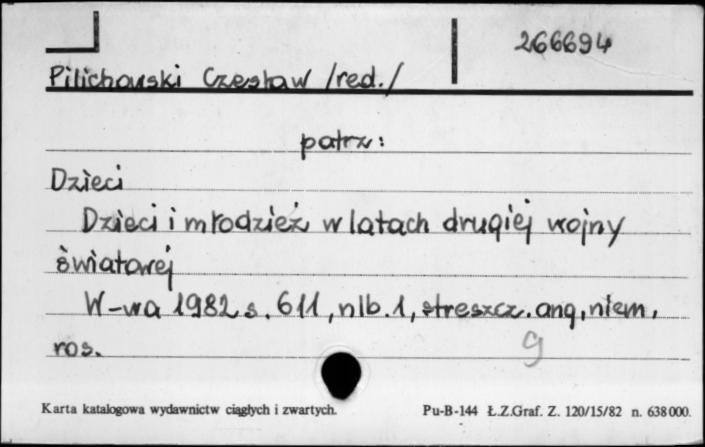 266694
Pilichowski Czesław /red./
patrz:
Dzieci
Dzieci i młodzież w latach drugiej wojny
światowej
W-wa 1982 s. 611, nlb. 1, streszcz. ang, niem,
ros.
g
Karta katalogowa wydawnictw ciągłych i zwartych. Pu-B-144 Ł.Z.Graf. Z. 120/15/82 n. 638000.